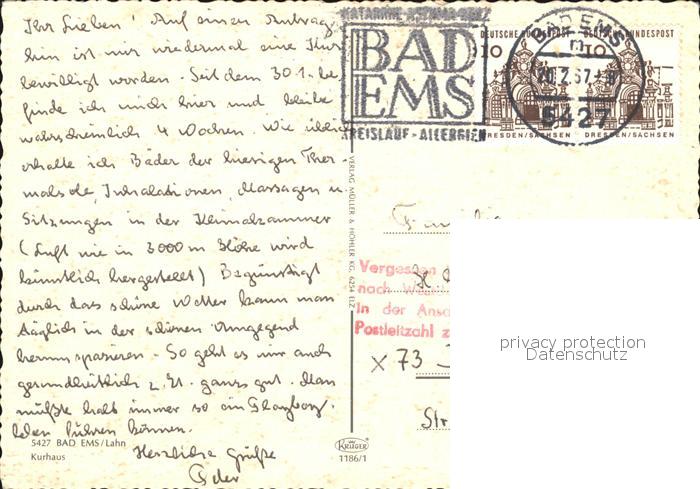 Ihr Lieben! Auf einen Antrag
hin ist mir wiedermal eine Kur
bewilligt worden. Seit dem 30.1. be-
finde ich mich hier und bleibe
wahrscheinlich 4 Wochen. Wie üblich
erhalte ich Bäder der hiesigen Ther-
malsole, Inhalationen, Massagen u.
Sitzungen in der Klimakammer
(Luft wie in 3000 m Höhe wird
künstlich hergestellt) Begünstigt
durch das schöne Wetter kann man
täglich in der schönen Umgegend
herumspazieren. So geht es mir auch
gesundheitlich z. Zt. ganz gut. Man
müßte halt immer so ein
leben führen können.
Herzliche Grüße
5427 BAD EMS/Lahn
Kurhaus
VERLAG MÜLLER & HÖHLER KG, 6254 ELZ
KRÜGER
1186/1
BAD
EMS
KREISLAUF-ALLERGIEN
DEUTSCHE BUNDESPOST
10
DRESDEN/SACHSEN
DEUTSCHE BUNDESPOST
10
DRESDEN/SACHSEN
BAD EMS
m
20.2.67
5427
Familie
Vergessen
nach
in der Ansc
Postleitzahl z
x 73
Str
privacy protection
Datenschutz